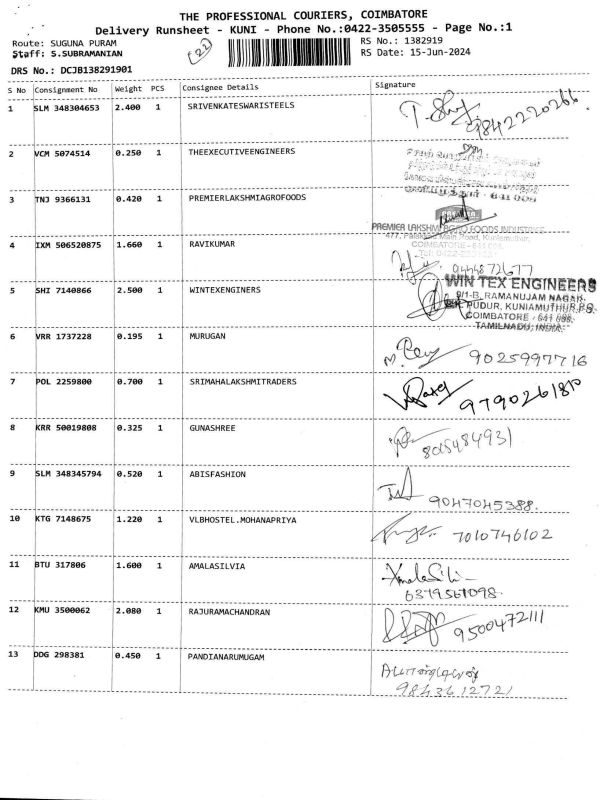 THE PROFESSIONAL COURIERS, COIMBATORE
Delivery Runsheet - KUNI - Phone No.:0422-3505555 - Page No.:1
Route: SUGUNA PURAM
Staff: S.SUBRAMANIAN
22
RS No.: 1382919
RS Date: 15-Jun-2024
DRS No.: DCJB138291901
S No Consignment No Weight PCS Consignee Details Signature
1 SLM 348304653 2.400 1 SRIVENKATESWARISTEELS
9842220266
2 VCM 5074514 0.250 1 THEEXECUTIVEENGINEERS
641 008
3 TNJ 9366131 0.420 1 PREMIERLAKSHMIAGROFOODS
PREMIER LAKSHMI AGRO FOODS INDUSTRIES
Main Road, Kuniamuthur,
COIMBATORE - 641 008
4 IXM 506520875 1.660 1 RAVIKUMAR
5 SHI 7140866 2.500 1 WINTEXENGINERS
WIN TEX ENGINEERS
9/1-B, RAMANUJAM NAGAR,
PUDUR, KUNIAMUTHUR.P.O.
COIMBATORE - 641 008.
TAMILNADU, INDIA.
6 VRR 1737228 0.195 1 MURUGAN
9025997716
7 POL 2259800 0.700 1 SRIMAHALAKSHMITRADERS
9790261810
8 KRR 50019808 0.325 1 GUNASHREE
8015484931
9 SLM 348345794 0.520 1 ABISFASHION
9047045388.
10 KTG 7148675 1.220 1 VLBHOSTEL.MOHANAPRIYA
7010746102
11 BTU 317806 1.600 1 AMALASILVIA
6379561098.
12 KMU 3500062 2.080 1 RAJURAMACHANDRAN
9500472111
13 DDG 298381 0.450 1 PANDIANARUMUGAM
9843612721